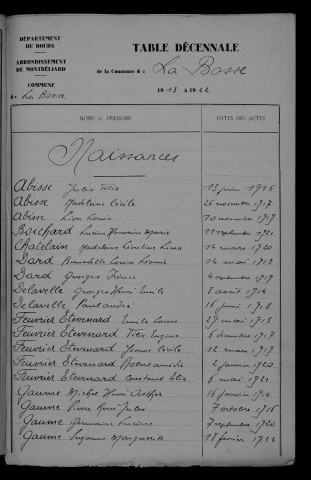 DÉPARTEMENT
DU DOUBS
ARRONDISSEMENT
DE MONTBÉLIARD
COMMUNE
de La Bosse
TABLE DÉCENNALE
de la Commune de La Bosse
1913 à 1922
NOMS et PRÉNOMS DATES DES ACTES
Naissances
Abisse Jules Félix 13 juin 1916
Abisse Madeleine Cécile 26 novembre 1917
Abisse Léon Louis 10 novembre 1917
Boichard Lucien Honorin Marie 11 septembre 1921
Chatelain Madeleine 14 mars 1920
Dard Bernadette Louise Léonie 14 mai 1913
Dard Georges 4 septembre 1919
Delavelle Georges Henri Emile 8 août 1914
Delavelle Paul André 16 juin 1918
Feuvrier Etevenard Emile Louis 29 mai 1913
Feuvrier Etevenard Félix Eugène 6 1917
Feuvrier Etevenard Yvonne Cécile 12 mars 1917
Feuvrier Etevenard 2 janvier 1920
Feuvrier Etevenard Constant Elie 6 mai 1921
Gaume Michel Henri 16 janvier 1914
Gaume Pierre René Jules 7 octobre 1916
Gaume Germaine Lucienne 7 septembre 1920
Gaume Suzanne Marguerite 18 février 1922